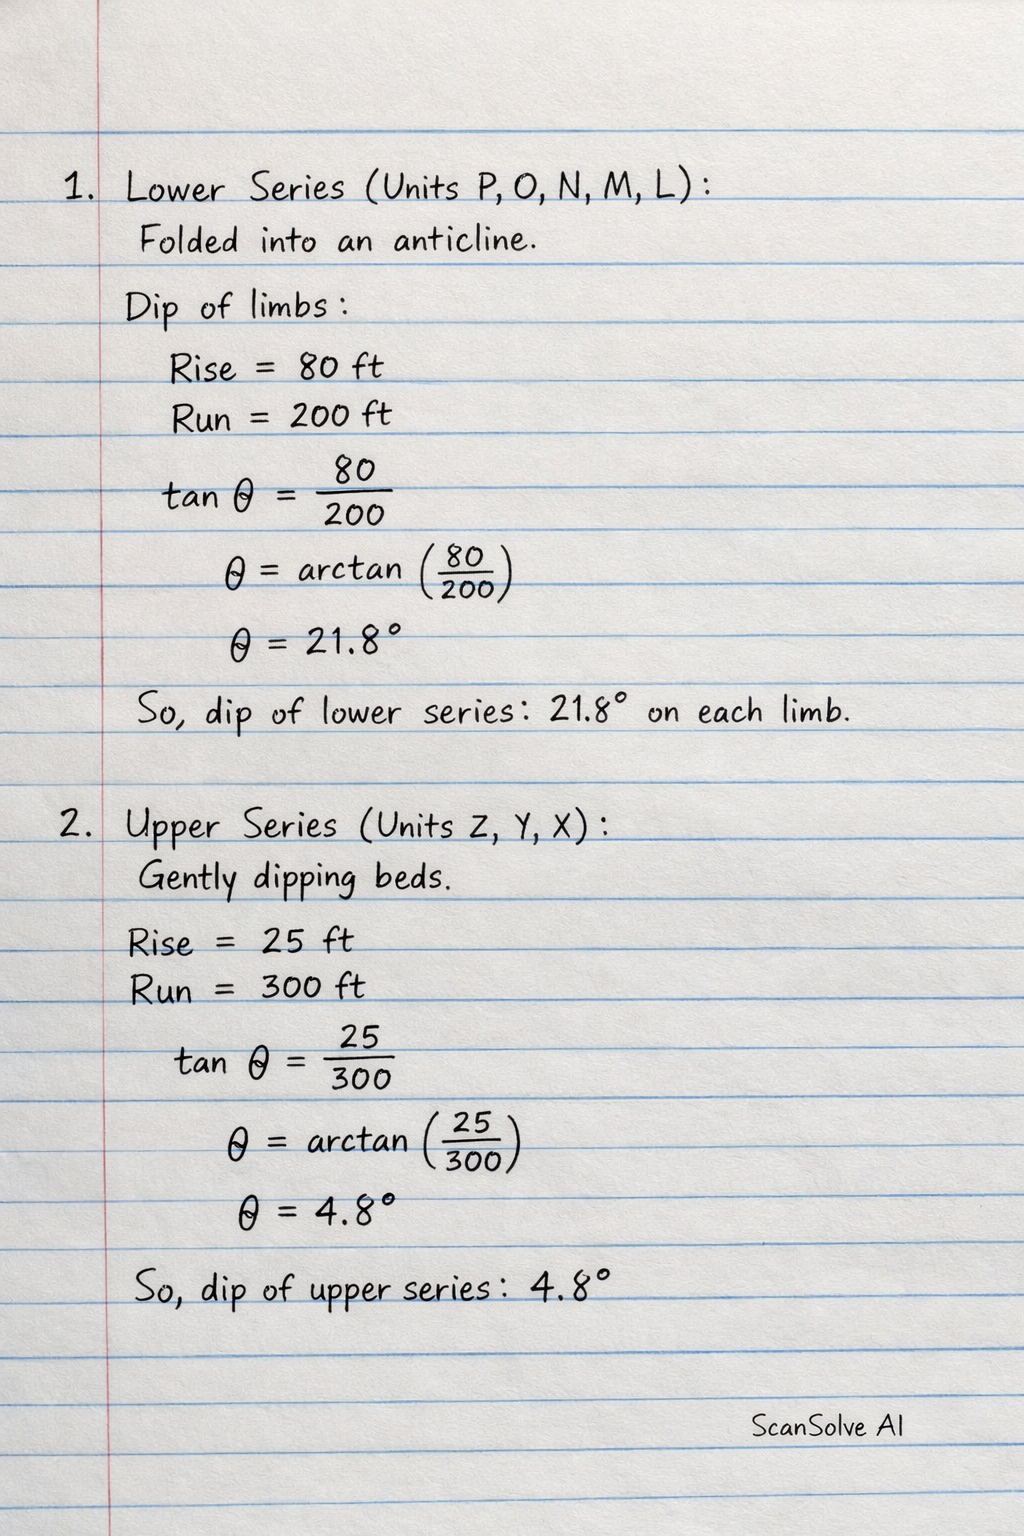 1. Lower Series (Units P, O, N, M, L):
Folded into an anticline.
Dip of limbs:
Rise = 80 ft
Run = 200 ft
tan θ = 80/200
θ = arctan (80/200)
θ = 21.8°
So, dip of lower series: 21.8° on each limb.
2. Upper Series (Units Z, Y, X):
Gently dipping beds.
Rise = 25 ft
Run = 300 ft
tan θ = 25/300
θ = arctan (25/300)
θ = 4.8°
So, dip of upper series: 4.8°
ScanSolve AI